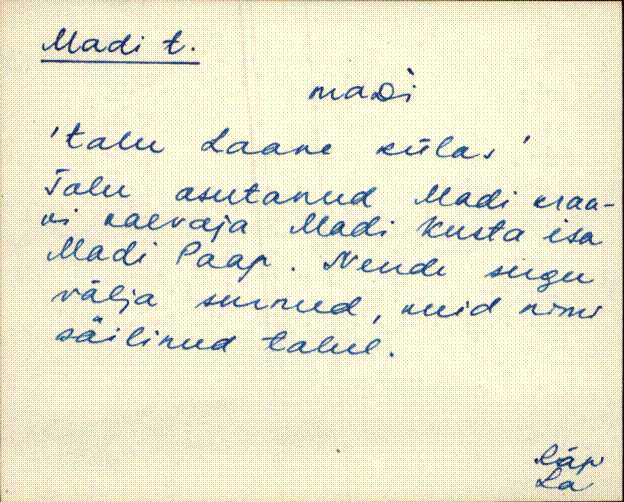 Madi t.
maDì
'talu Laane külas'
Talu asutanud Madi kraa-
vi kaevaja Madi Kusta isa
Madi Paap. Nende sugu
välja surnud, kuid nimi
säilinud talul.
Räp
La